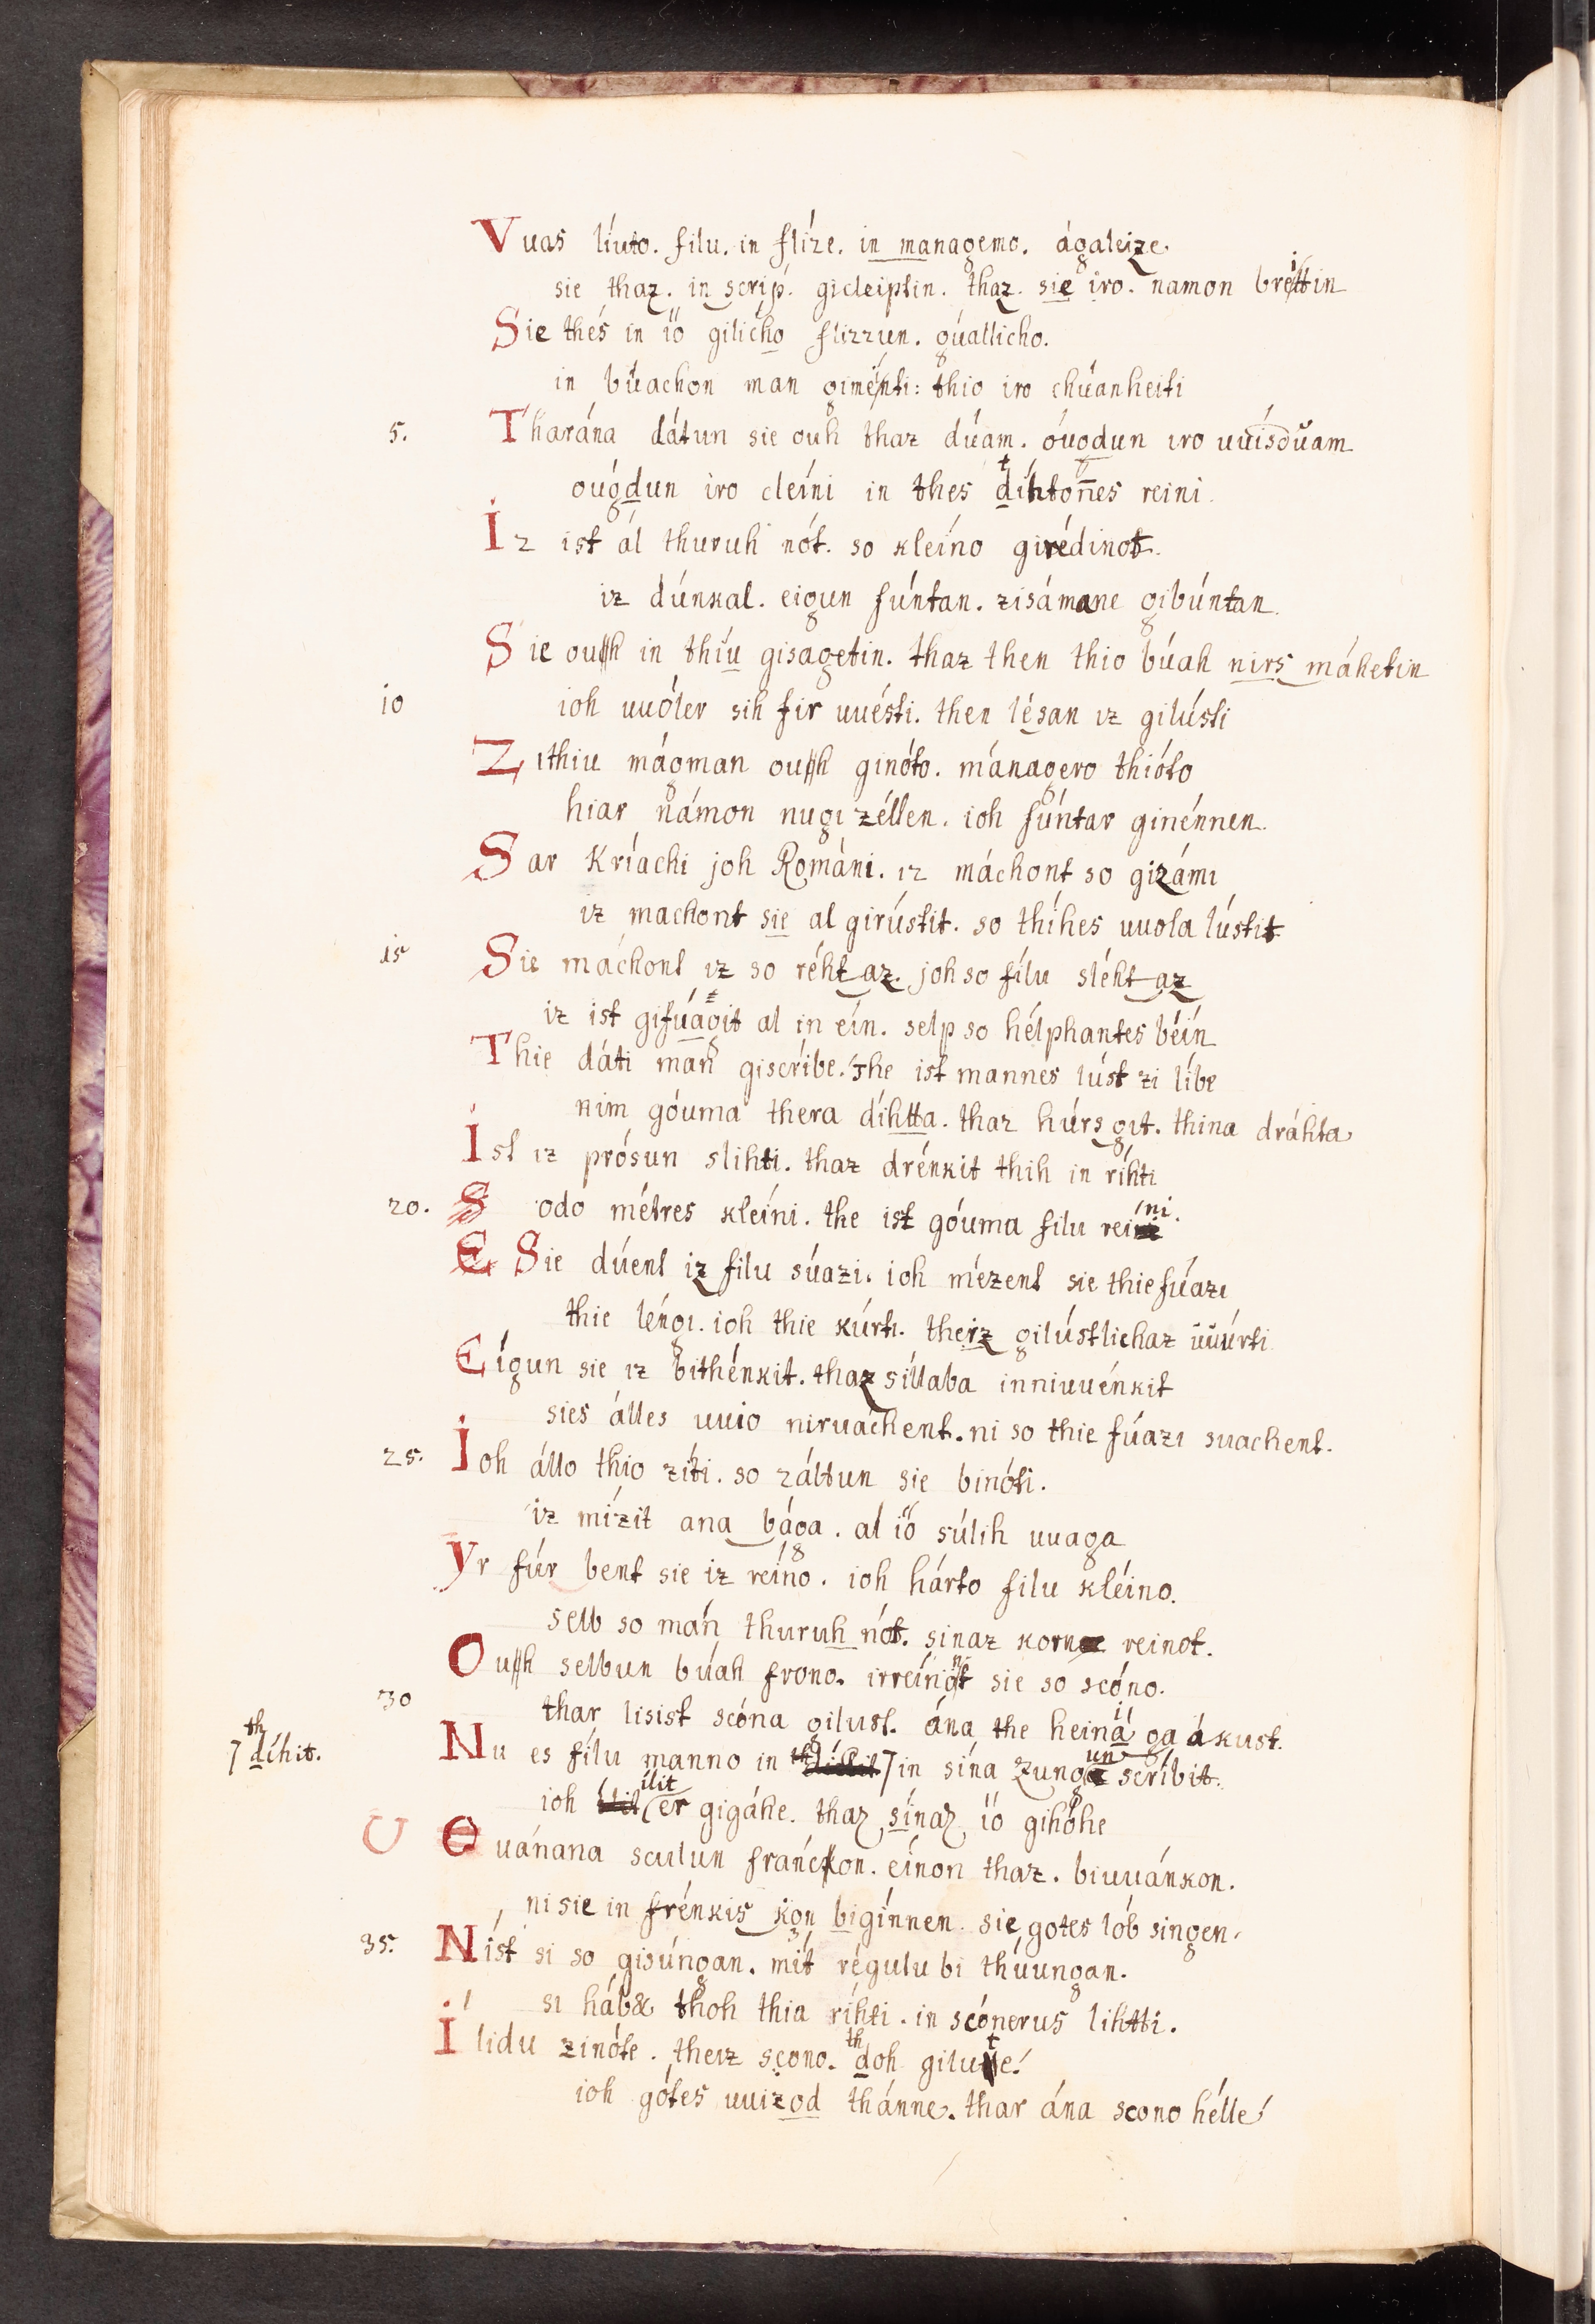 Vuas líuto. filu. in flíze. in managemo. ágaleize
sie thaz. in scrip. gicleiptin. thaz. sie iro. namon breittin
Sie thés in íö gilícho flizzun. gúallicho.
in búachon man giménti: thio iro chúanheiti
5. Tharána dátun sie ouh thaz dúam. óuodun iro uuísdŭam
óugdun iro cleíni in thes díhtonnes reini.
Iz ist ál thuruh nót. so kleíno girédinot.
iz dúnkal. eigun fúntan. zisámane gibúntan
Sie ouh in thíu gisagetin. thaz then thio búah nirs máhetin
10 ioh uuóler sih fir uuésti. then lésan iz gilústi
Zithiu mágman ouh ginóto. mánagero thióto
hiar námon nugizéllen. ioh súntar ginénnen.
Sar Kríachi joh Románi. iz máchont so gizámi
iz machont sie al girústit. so thíhes uuola lústit
15 Sie máchont iz so réhtaz. joh so fílu sléhtaz
iz ist gifúagit al in eín. selp so hélphantes béin
Thie dáti man giscríbe. The ist mannes lúst zi líbe
nim góuma thera díhtta. thaz húrsgit. thina dráhta
Ist iz prósun slihti. thaz drénkit thih in ríhti
20. S odo métres kleíni. the ist góuma filu reini.
E Sie dúent iz filu súazi. ioh mézent sie thie fúazi
thie léngi. ioh thie kúrti. theiz gilústlichaz uuúrti
Eígun sie iz bithénkit. thaz síllaba inniuuénkit
sies álles uuio niruáchent. ni so thie fúazi suachent.
25. Ioh állo thio zíti. so záltun sie binóti.
iz mízit ana bága. al íö súlih uuaga
Yr fúrbent sie iz reíno. ioh hárto filu kléino.
selb so man thuruh nót. sinaz korn reinot.
Ouh selbun búah frono. irreínont sie so scóno.
30 thar lisist scóna gilust. ána the heinä ga ákust.
7 thdíhit. Nu es fílu manno in 7 in sína zungun scríbit.
ioh ílit er gigáhe. thaz sínaz íö gihóhe
U E uánana sculun fráncon. eínon thaz. biuuánkon.
ni sie in frénkisgon bigínnen. sie gotes lób singen
35. Níst si so gisúngan. mit régulu bi thúungan.
si háb& thoh thia ríhti. in scónerus lihtti.
Ilidu zinóte. theiz scono. thdoh gilute!
ioh gótes uuizod thánne. thar ána scono hélle!